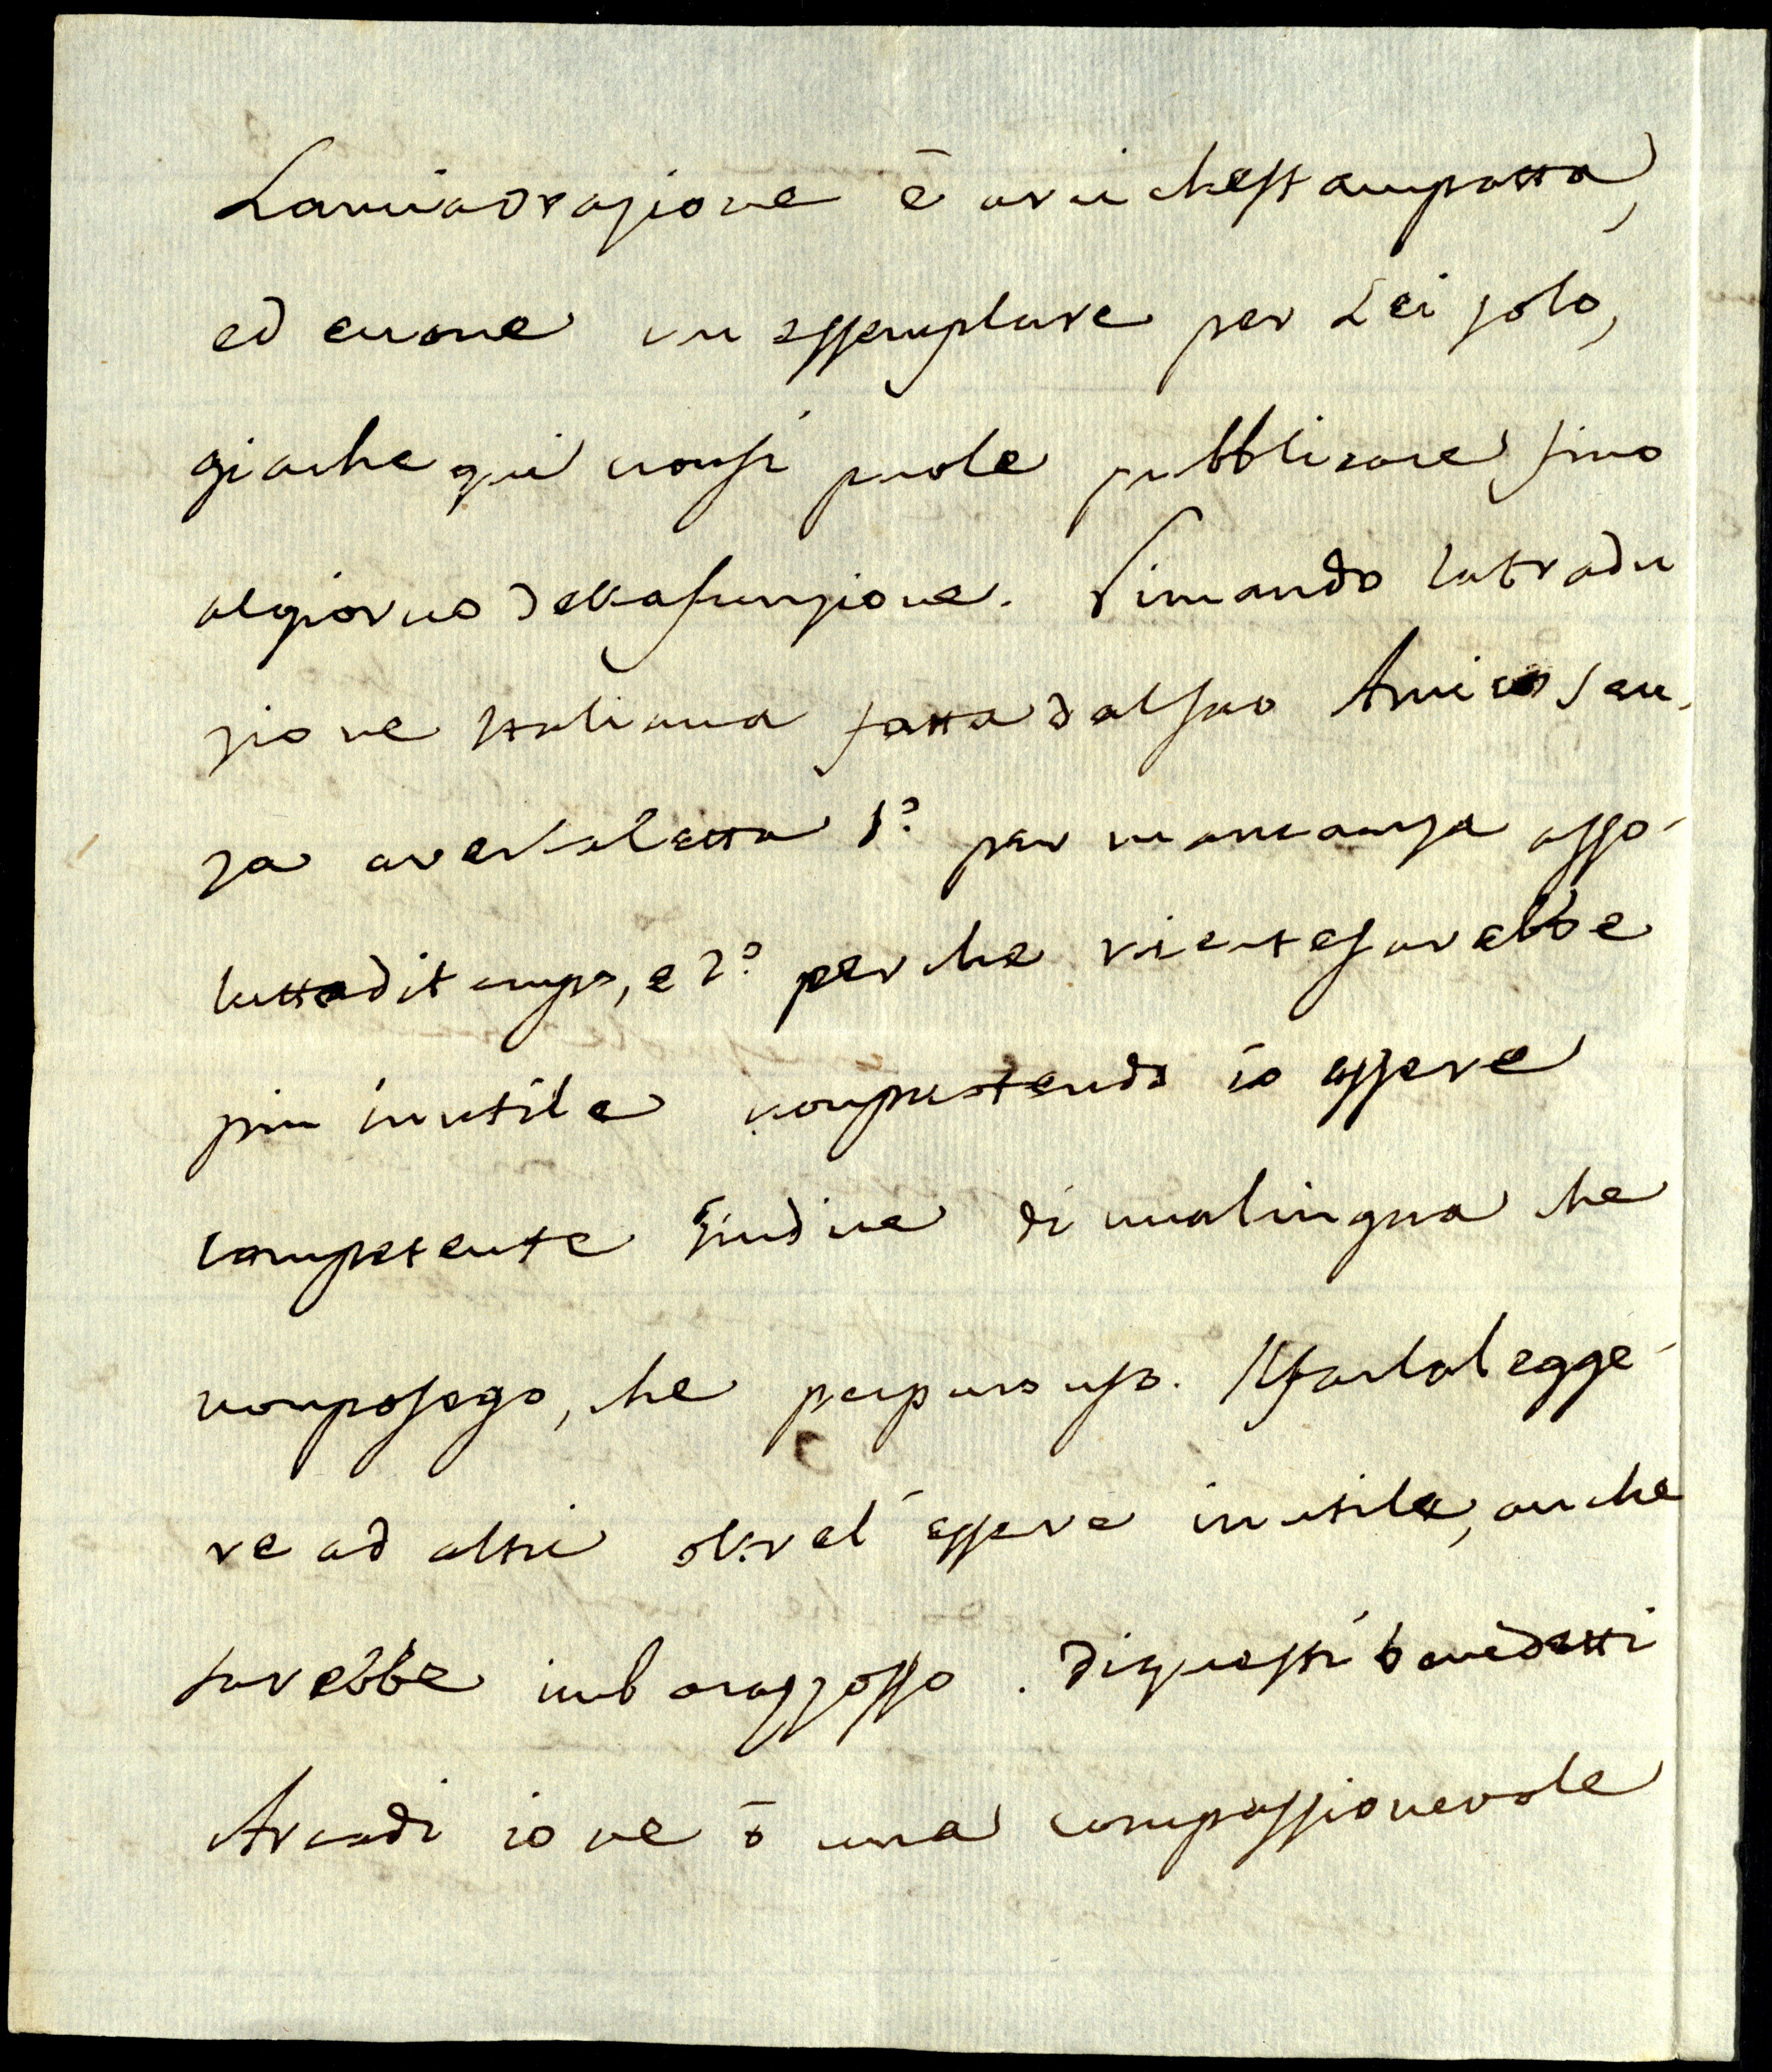 La mia orazione è arci che stampatta,
ed eccone un essemplare per Lei solo,
giache qui non si puole pubblicare sino
al giorno della funzione. Rimando la tradu
zione Italiana fatta dal suo Amico sen-
za averla letta 1º per mancanza asso-
lutta di tempo, e 2º perche niente sarebbe
piu inutile non potendo io essere
competente Giudice di una lingua che
non posego, che per puro uso. Il farla legge-
re ad altri oltre l'essere inutile, anche
sarebbe imbarazzosso. Di questi benedetti
Arcadi io ne ò una compassionevole